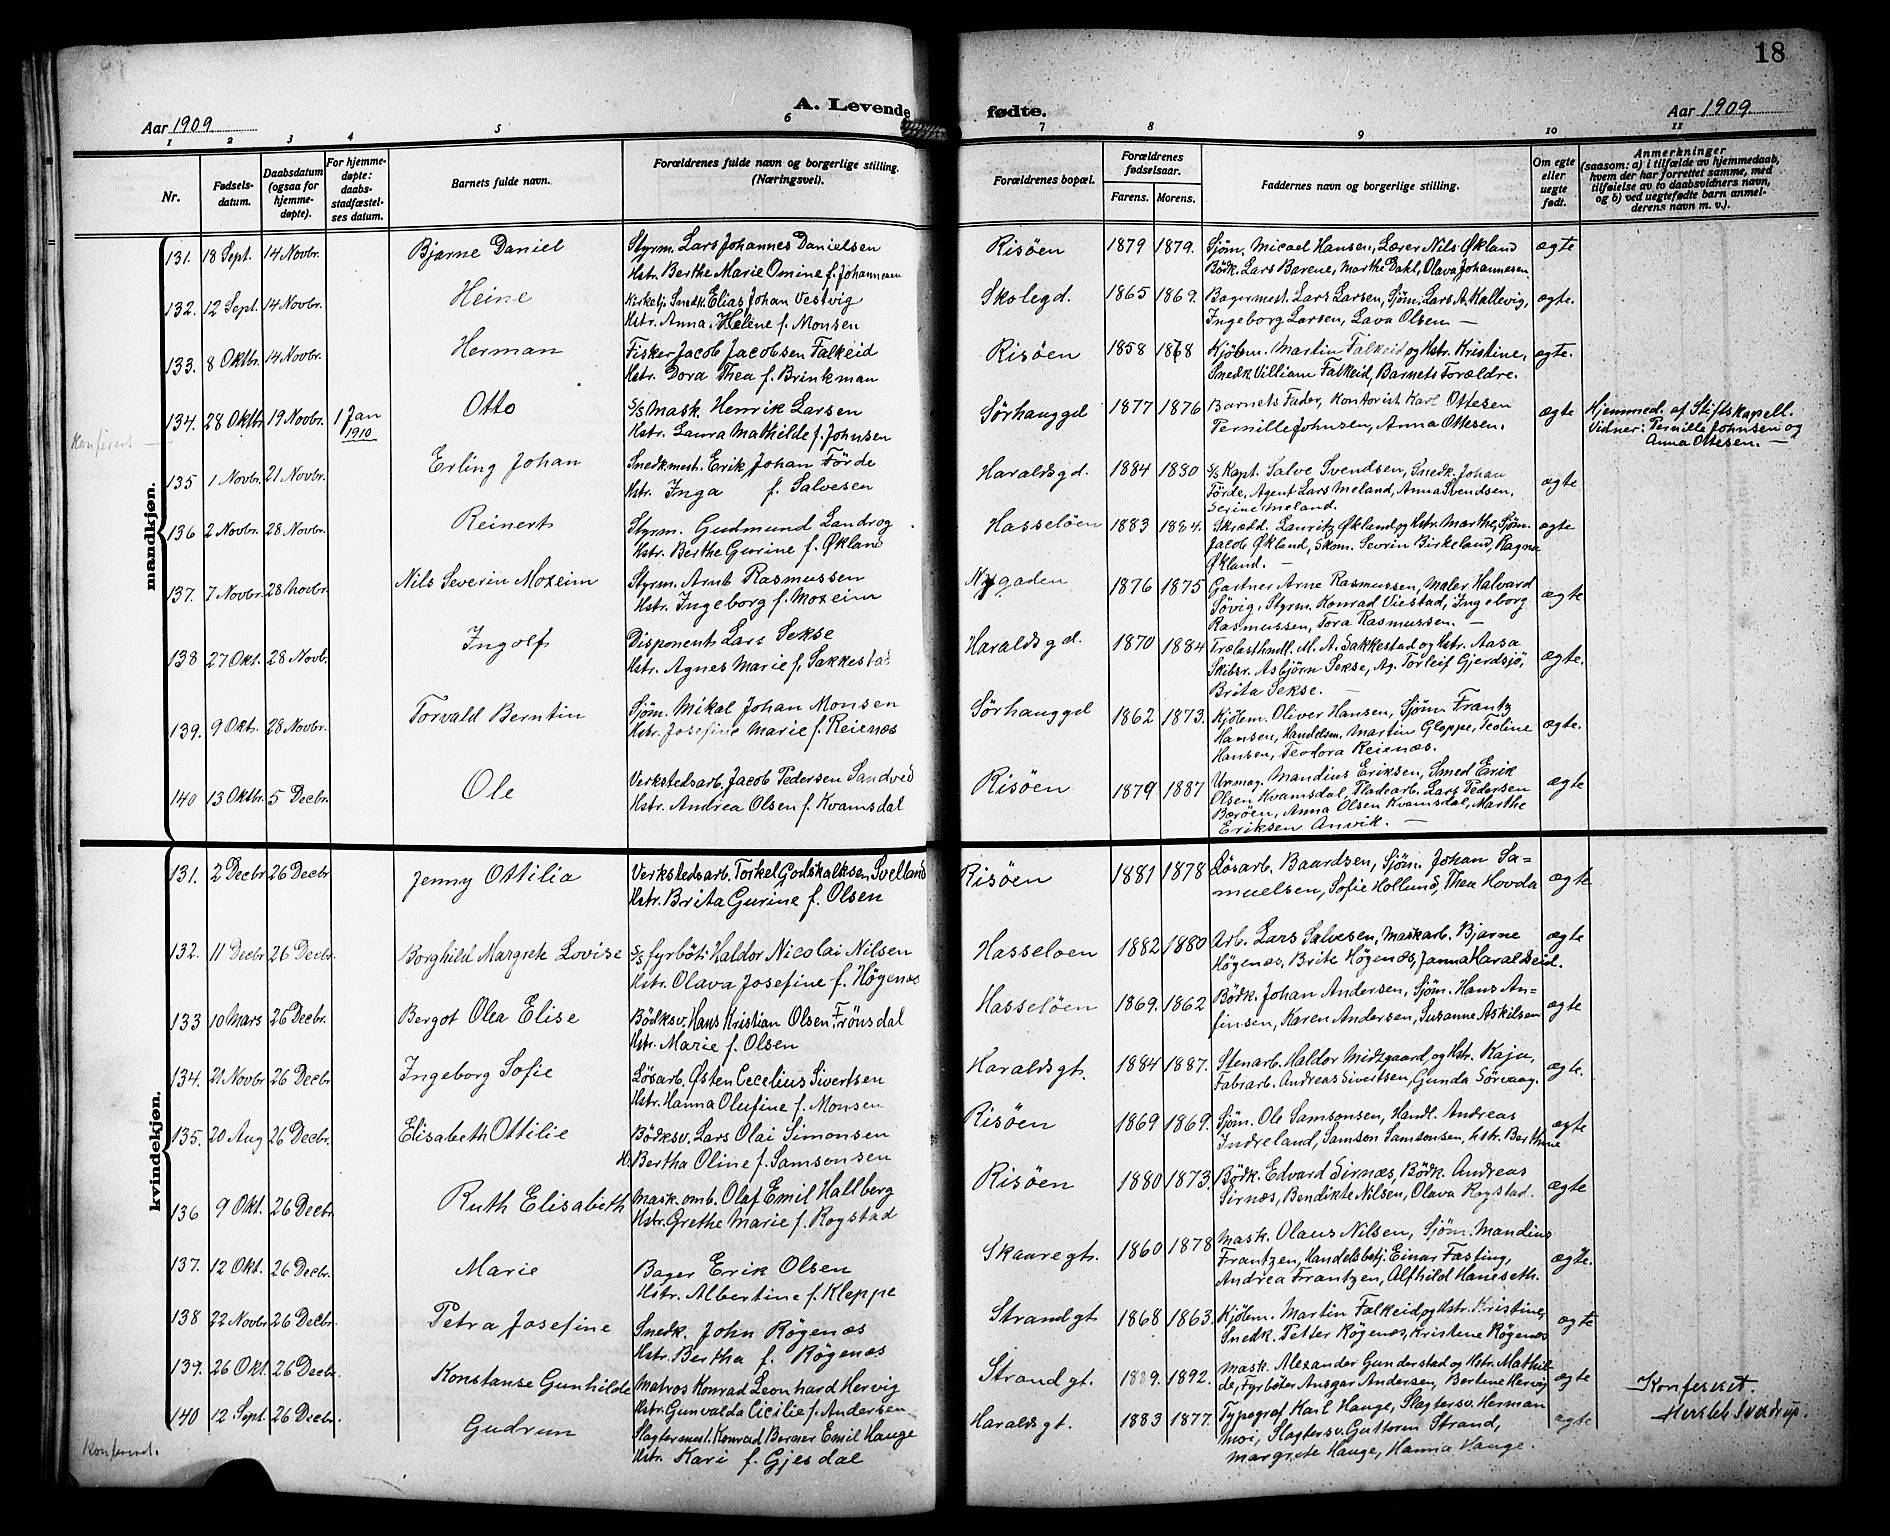 18
A. Levende fødte.
Aar 1909
Aar 1909
1 2 3 4 5 6 7 8 9 10 11
Nr.
Fødsels-
datum.
Daabsdatum
(ogsaa for
hjemme-
døpte).
For hjemme-
døpte:
daabs-
stadfæstel-
ses datum.
Barnets fulde navn.
Forældrenes fulde navn og borgerlige stilling.
(Næringsvei).
Forældrenes bopæl.
Forældrenes
fødselsaar.
Farens. Morens.
Faddernes navn og borgerlige stilling.
Om egte
eller
uegte
født.
Anmerkninger
(saasom: a) i tilfælde av hjemmedaab,
hvem der har forrettet samme, med
tilføielse av to daabsvidners navn,
og b) ved uegtefødte barn anmel-
derens navn m. v.).
mandkjøn.
131. 18 Sept. 14 Novbr. Bjarne Daniel Styrm. Lars Johannes Danielsen Risöen 1879 1879. Sjöm. Micael Hansen, Lærer Nils Økland ægte
Hstr. Berthe Marie Omine f. Johannesen Bödk. Lars Barene, Marthe Dahl, Olava Johannesen
132. 12 Sept. 14 Novbr. Heine Kirketj. Snedk. Elias Johan Vestvig Skolegd. 1865 1869. Bagermest. Lars Larsen, Sjöm. Lars A. Hallevig, ægte.
Hstr. Anna Helene f. Monsen Ingeborg Larsen, Lava Olsen —
133. 8 Oktbr. 14 Novbr. Herman Fisker Jacob Jacobsen Falkeid Risöen 1858 1868 Kjöbm. Martin Falkeid og Hstr. Kristine, ægte.
Hstr. Dora Thea f. Brinkman Snedk. Villiam Falkeid, Barnets Forældre.
134. 28 Oktbr. 19 Novbr. 1 Jan 1910 Otto S/S Mask. Henrik Larsen Sörhauggd 1877 1876 Barnets Fader, Kontorist Karl Ottesen ægte Hjemmed. af Stiftskapell.
Konfirert — Hstr. Laura Mathilde f. Johnsen Pernille Johnsen, Anna Ottesen. Vidner: Pernille Johnsen og
Anna Ottesen. —
135 1 Novbr. 21 Novbr. Erling Johan Snedkmest. Erik Johan Förde Haraldsgd. 1884 1880 S/S Kapt. Salve Svendsen, Snedk. Johan ægte
Hstr. Inga f. Salvesen Förde, Agent Lars Meland, Anna Svendsen,
Serine Meland.
136 2 Novbr. 28 Novbr. Reinert Styrm. Gudmund Landrog Hasselöen 1883 1884. Skrædd. Lauritz Økland og Hstr. Marthe, Sjöm. ægte
Hstr. Berthe Gurine f. Økland Jacob Økland, Skom. Sevrin Birkeland, Ragna
Økland. —
137. 7 Novbr. 28 Novbr. Nils Severin Moxeim Styrm. Arnt Rasmussen Nygaden 1876 1875 Gartner Arne Rasmussen, Maler Halvard ægte
Hstr. Ingeborg f. Moxeim Sövig, Styrm. Konrad Viestad, Ingeborg
Rasmussen, Tora Rasmussen. —
138 27 Okt. 28 Novb. Ingolf Disponent Lars Sekse Haraldsgd. 1870 1884 Trælasthndl. M. A. Sakkestad og Hstr. Aasa ægte.
Hstr. Agnes Marie f. Sakkestad Skibsr. Asbjörn Sekse, Ag. Torleif Gjerdsjö,
Brita Sekse. —
139. 9 Okt. 28 Novbr. Torvald Berntin Sjöm. Mikal Johan Monsen Sörhauggd 1862 1873. Kjölem. Oliver Hansen, Sjöm. Frantz ægte.
Hstr. Josefine Marie f. Reienæs Hansen, Handelsm. Martin Gloppe, Teoline
Hansen, Teodora Reienæs.
140 13 Oktbr. 5 Decbr. Ole Verkstedsarb. Jacob Pedersen Sandved Risöen 1879 1887 Urmag. Mandius Eriksen, Smed Erik ægte
Hstr. Andrea Olsen f. Kvamsdal Olsen Kvamsdal, Pladearb. Lars Pedersen
Bæröen, Anna Olsen Kvamsdal, Marthe
Eriksen Anvik. —
kvindekjøn.
131. 2 Decbr 26 Decbr Jenny Ottilia Verkstedsarb. Torkel Godskalksen Svelland Risöen 1881 1878 Lösarb. Baardsen, Sjöm. Johan Sa=
Hstr. Brita Gurine f. Olsen muelsen, Sofie Hollund, Thea Hovda ægte
132. 11 Decbr 26 Decbr. Borghild Margrete Lovise S/S fyrböt. Haldor Nicolai Nilsen Hasseloen 1882 1880 Arb. Lars Salvesen, Maskarb. Bjarne ægte
Hstr. Olava Josefine f. Högenæs Högenæs, Brite Högenæs, Janna Haraldseid.
133 10 Mars 26 Decbr. Bergot Olea Elise Bödksv. Hans Kristian Olsen Frönsdal Hasselöen 1869. 1862 Bödk. Johan Andersen, Sjöm. Hans An= ægte
Hstr. Marie f. Olsen finsen, Karen Andersen, Susanne Askilsen
134. 21 Novbr 26 Decbr Ingeborg Sofie Lösarb. Østen Cecelius Sivertsen Haraldsgt. 1884 1887. Stenarb. Haldor Midtgaard og Hstr. Kaja, ægte.
Hstr. Hanna Olufine f. Monsen Fabrarb. Andreas Sivertsen, Gunda Sörvaag.
135. 20 Aug 26 Decbr. Elisabeth Ottilie Bödksv. Lars Olai Simonsen Risöen 1869 1869. Sjöm. Ole Samsonsen, Handl. Andreas ægte
H. Bertha Oline f. Samsonsen Indreland, Samson Samsonsen, hstr. Berthine
136 9 Okt. 26 Decbr. Ruth Elisabeth Mask. omb. Olaf Emil Hallberg Risöen 1880 1873. Bödk. Edvard Sirnæs, Bödk. Andreas ægte
Hstr. Grethe Marie f. Rogstad Sirnæs, Bendikte Nilsen, Olava Rogstad.
137. 12 Okt. 26 Decbr. Marie Bager Erik Olsen Skaaregt. 1860 1878 Mask. Olaus Nilsen, Sjöm. Mandius ægte.
Hstr. Albertine f. Kleppe Frantzen, Handelsbetj. Einar Fasting,
Andrea Frantzen, Alfhild Haneseth.
138 22 Novbr 26 Decbr. Petra Josefine Snedk. John Rögenæs Strandgt. 1868 1863. Kjöbm. Martin Falkeid og Hstr. Kristine, ægte
Hstr. Bertha f. Rögenæs Snedk. Petter Rögenæs, Kristene Rögenæs
139. 26 Okt. 26 Decbr. Konstanse Gunhilde Matros Konrad Leonhard Hervig Strandgt. 1889. 1892. Mask. Alexander Gunderstad og Hstr. Mathil- ægte Konfereret.
Hstr. Gunvalda Cicilie f. Andersen de, Fyrböter Ansgar Andersen, Bertine Hervig
140 12 Sept. 26 Decbr. Gudrun Slagtermest. Konrad Berner Emil Hauge Haraldsgt. 1883 1877. Typograf Karl Hauge, Slagtersv. Herman ægte
Hstr. Kari f. Gjesdal Moi, Slagtersv. Guttorm Strand,
Margrete Hauge, Hanna Hauge.